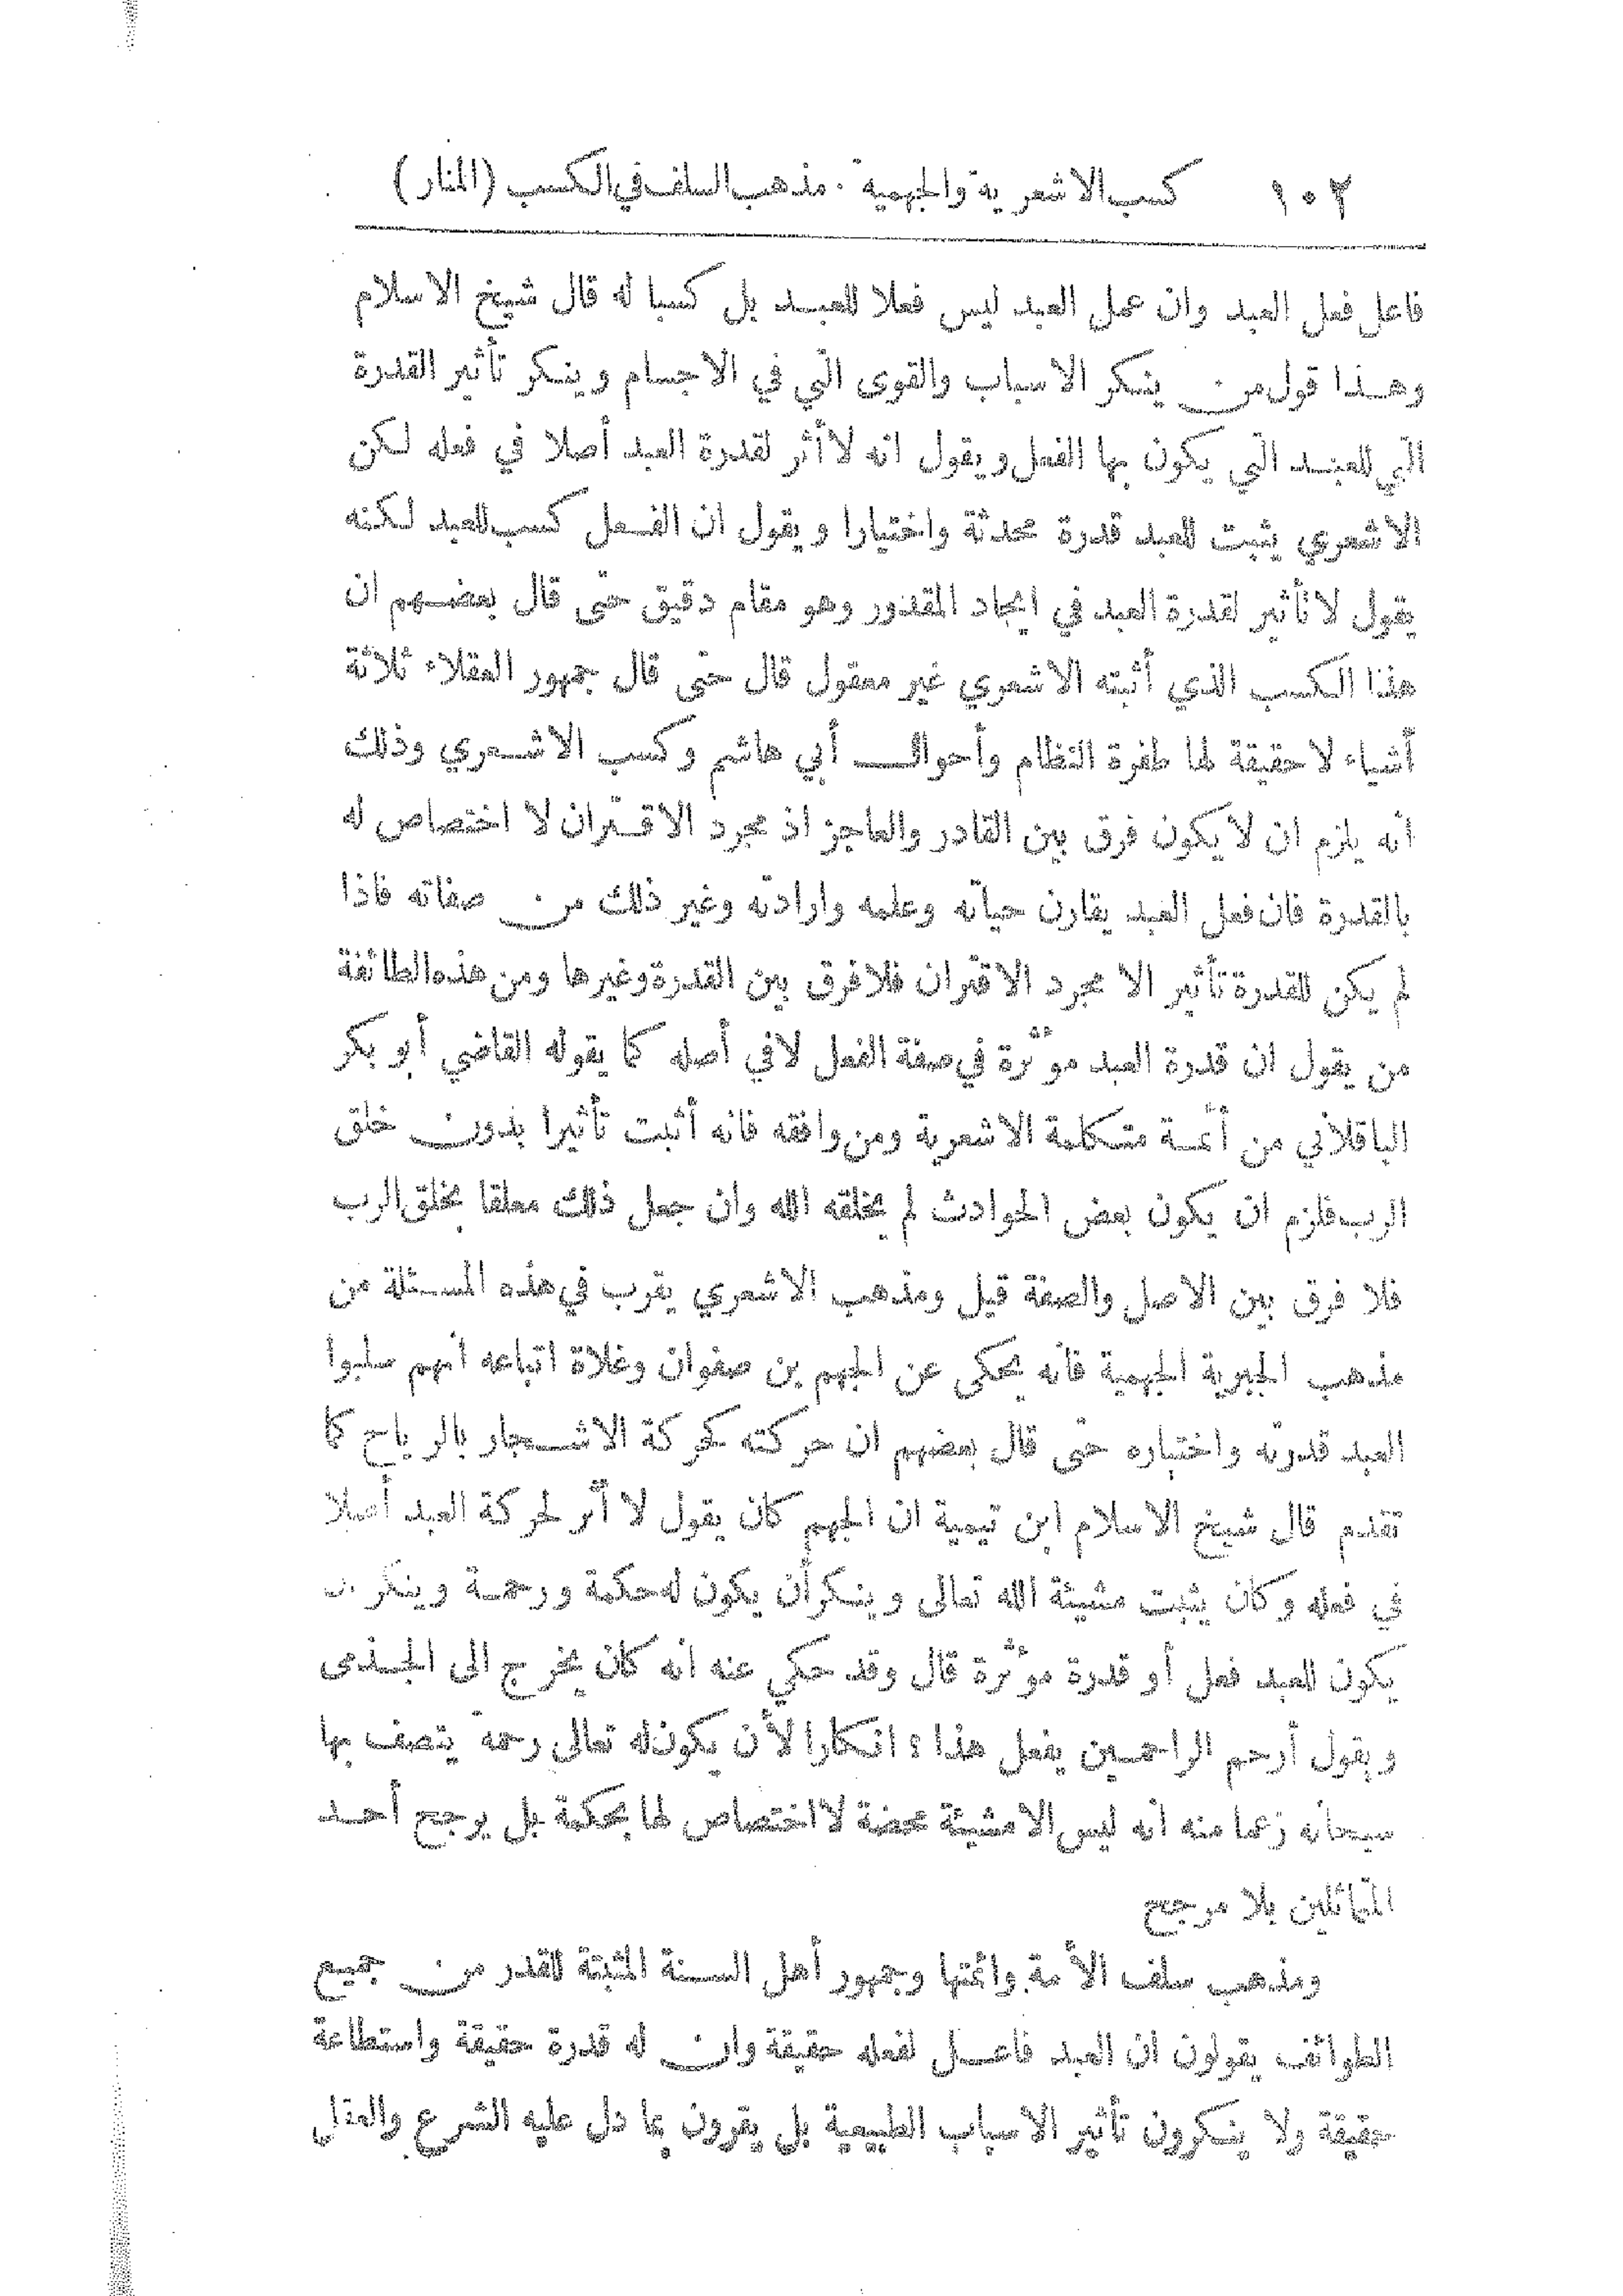 ١٠٢ كسب الاشعرية والجهمية . مذهب السلف في الكسب (المنار)
فاعل فعل العبد وان عمل العبد ليس فعلا للعبد بل كسبا له قال شيخ الاسلام
وهذا قول من ينكر الاسباب والقوى التي في الاجسام وينكر تأثير القدرة
التي للعبد التي يكون بها الفعل ويقول انه لا أثر لقدرة العبد أصلا في فعله لكن
الاشعري يثبت للعبد قدرة محدثة واختيارا ويقول ان الفعل كسب للعبد لكنه
يقول لا تأثير لقدرة العبد في ايجاد المقدور وهو مقام دقيق حتى قال بعضهم ان
هذا الكسب الذي أثبته الاشعري غير معقول قال حتى قال جمهور العقلاء ثلاثة
أشياء لا حقيقة لها طفرة النظام وأحوال أبي هاشم وكسب الاشعري وذلك
أنه يلزم ان لا يكون فرق بين القادر والعاجز اذ مجرد الاقتران لا اختصاص له
بالقدرة فان فعل العبد يقارن حياته وعلمه وارادته وغير ذلك من صفاته فاذا
لم يكن للقدرة تأثير الا مجرد الاقتران فلا فرق بين القدرة وغيرها ومن هذه الطائفة
من يقول ان قدرة العبد مؤثرة في صفة الفعل لا في أصله كما يقوله القاضي أبو بكر
الباقلاني من أئمة متكلمة الاشعرية ومن وافقه فانه أثبت تأثيرا بدون خلق
الرب فلزم ان يكون بعض الحوادث لم يخلقه الله وان جعل ذلك معلقا بخلق الرب
فلا فرق بين الاصل والصفة قيل ومذهب الاشعري يقرب في هذه المسئلة من
مذهب الجبرية الجهمية فانه يحكى عن الجهم بن صفوان وغلاة اتباعه انهم سلبوا
العبد قدرته واختياره حتى قال بعضهم ان حركته كحركة الاشجار بالرياح كما
تقدم قال شيخ الاسلام ابن تيمية ان الجهم كان يقول لا أثر لحركة العبد أصلا
في فعله وكان يثبت مشيئة الله تعالى وينكر أن يكون له حكمة ورحمة وينكر ان
يكون للعبد فعل أو قدرة مؤثرة قال وقد حكي عنه انه كان يخرج الى الجذمى
ويقول أرحم الراحمين يفعل هذا ؟ انكارا لأن يكون له تعالى رحمة يتصف بها
سبحانه زعما منه انه ليس الا مشيئة محضة لا اختصاص لها بحكمة بل يرجح أحد
المتماثلين بلا مرجح
ومذهب سلف الأمة وائمتها وجمهور أهل السنة المثبتة للقدر من جميع
الطوائف يقولون ان العبد فاعل لفعله حقيقة وان له قدرة حقيقة واستطاعة
حقيقة ولا ينكرون تأثير الاسباب الطبيعية بل يقرون بما دل عليه الشرع والعقل